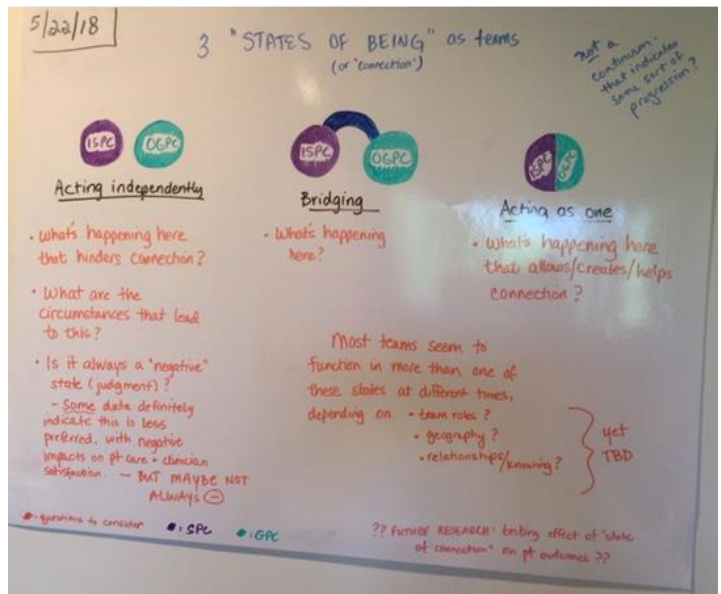 5/22/18
3 "STATES OF BEING" as teams
(or 'connection')
not a
continuum-
that indicates
some sort of
progression?
ISPC
OGPC
Acting independently
• What's happening here
that hinders connection?
• What are the
circumstances that lead
to this?
• Is it always a "negative"
state (judgment)?
- Some data definitely
indicate this is less
preferred, with negative
impacts on pt care + clinician
satisfaction. - BUT MAYBE NOT
ALWAYS ⊖
ISPC
OGPC
Bridging
• What's happening
here?
ISPC
OGPC
Acting as one
• What's happening here
that allows/creates/helps
connection?
Most teams seem to
function in more than one of
these states at different times,
depending on • team roles?
• geography?
• relationships/knowing?
yet
TBD
= questions to consider
= SPC
= GPC
?? FUTURE RESEARCH: testing effect of "state
of connection" on pt outcomes ??